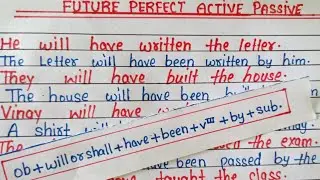 FUTURE PERFECT ACTIVE PASSIVE
He will have written the letter.
The Letter will have been written by him.
They will have built the house.
The house will have been built them.
Vinay will have
A shirt will
ob+will or shall+have+been+vIII+by+sub.
the exam.
have been passed by the
taught the class.